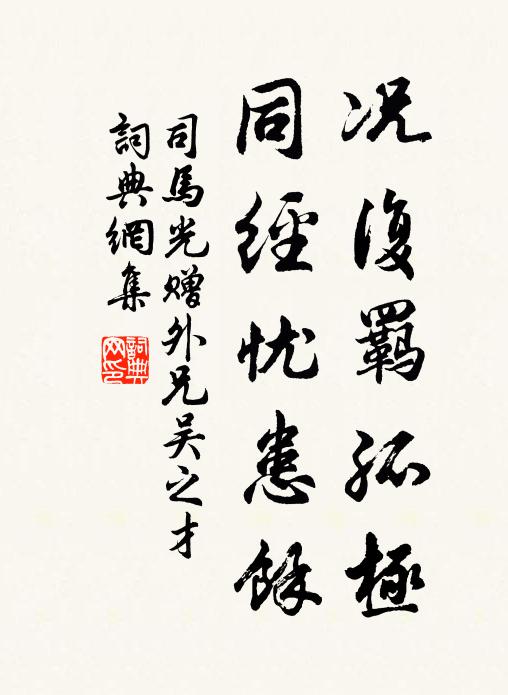 况復羈孤極
同經忧患餘
司馬光赠外兄吴之才
詞典網集
詞典網印